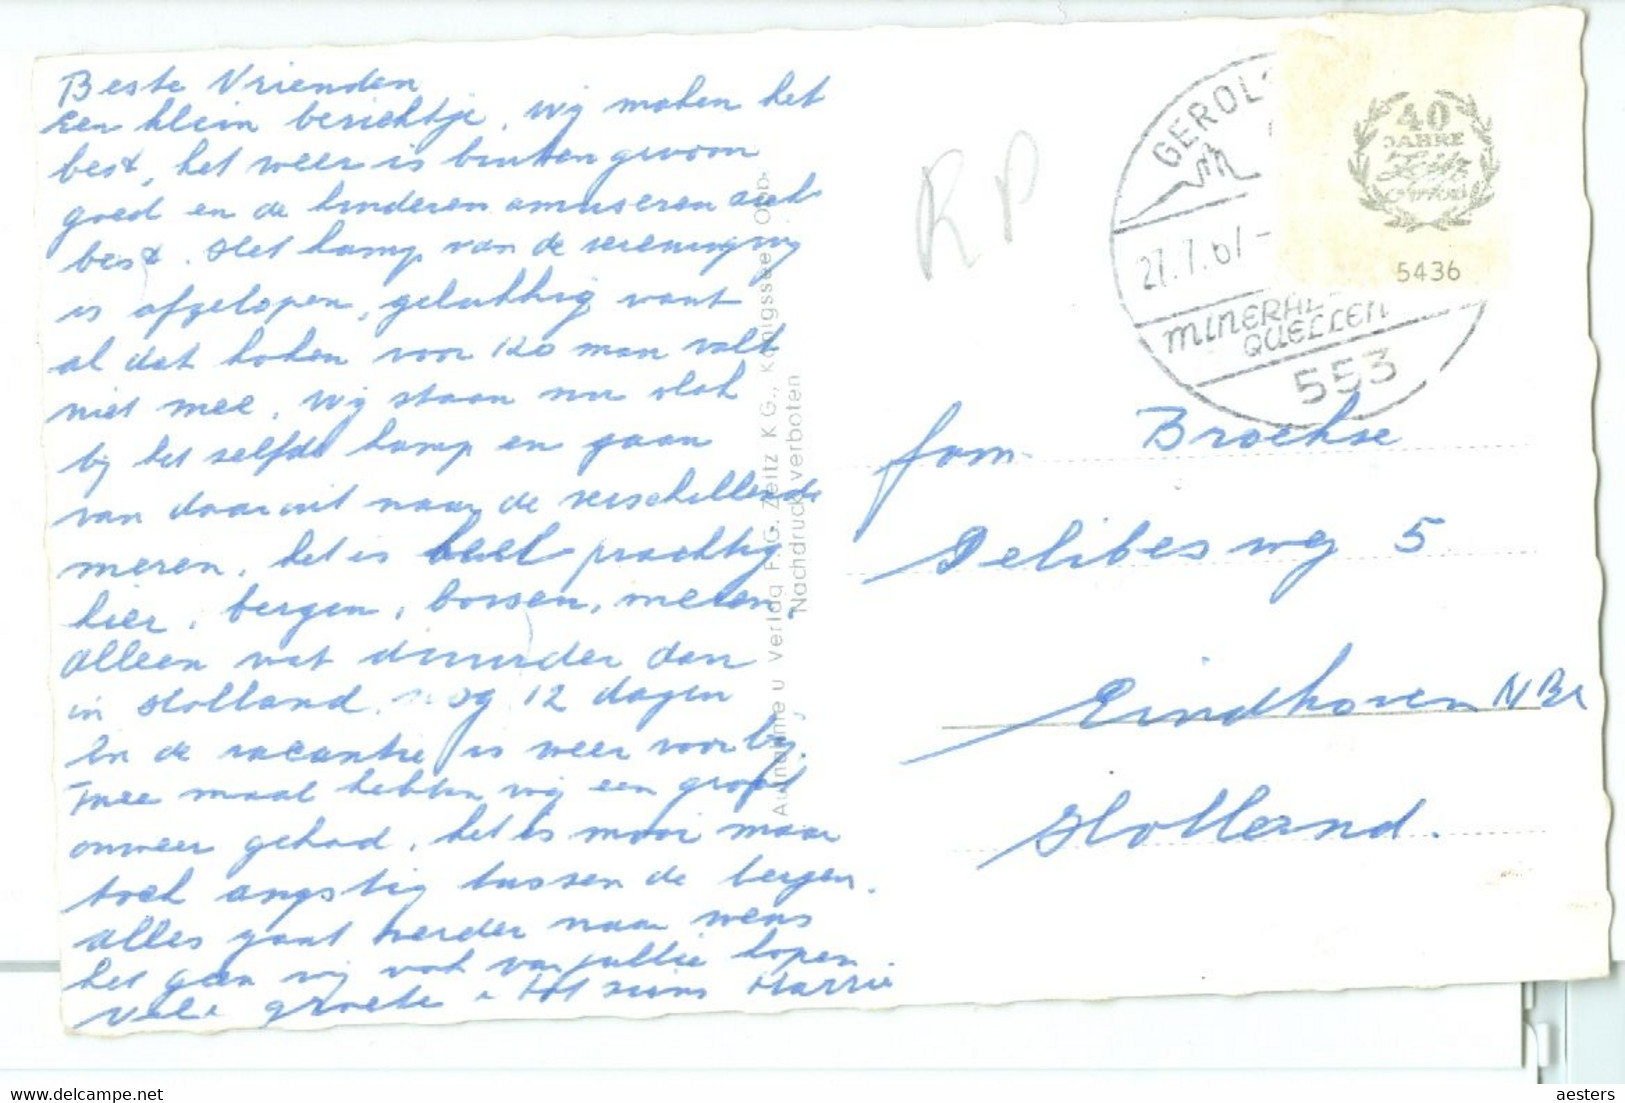 Beste Vrienden
een klein berichtje, wij maken het
best, het weer is buitengewoon
goed en de kinderen amuseren zich
best. Het kamp van de vereniging
is afgelopen, gelukkig want
al dat koken voor 120 man valt
niet mee, wij staan nu vlak
bij het zelfde kamp en gaan
van daar uit naar de verschillende
meren, het is heel prachtig
hier, bergen, bossen, meren,
alleen wat duurder dan
in Holland, nog 12 dagen
en de vacantie is weer voorbij.
Twee maal hebben wij een groot
onweer gehad, het is mooi maar
toch angstig tussen de bergen.
alles gaat verder naar wens
het geen wij ook van jullie hopen
vele groete tot ziens Harrie
Aufnahme u Verlag F. G. Zeitz K G., Königssee Obb.
Nachdruck verboten
RP
GEROLS
27.7.67-
MINERAL
QUELLEN
553
40
JAHRE
Zeitz
5436
fam. Broekse
Delibesweg 5
Eindhoven NBr
Hollernd.
aesters